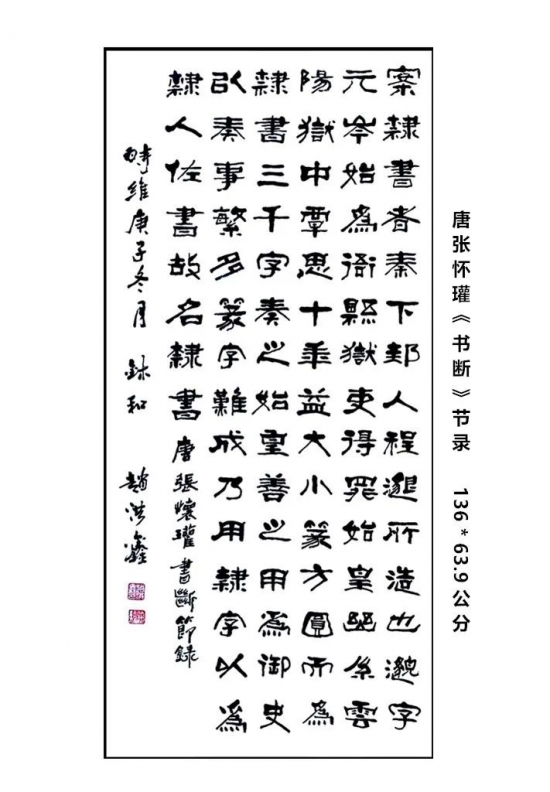 唐张怀瓘《书断》节录 136 * 63.9公分
案隸書者秦下邽人程邈所造也邈字
元岑始為衙縣獄吏得罪始皇幽系雲
陽獄中覃思十年益大小篆方圓而為
隸書三千字奏之始皇善之用為御史
以奏事繁多篆字難成乃用隸字以為
隸人佐書故名隸書 唐張懷瓘書斷節錄
時維庚子冬月 趙洪鑫